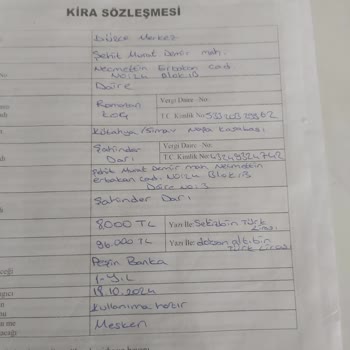 KİRA SÖZLEŞMESİ
Merkez
Şehit Murat Demir mah.
Necmettin Erbakan cad.
No:24 Blok:B
Daire
Ramazan
Koç
Vergi Daire - No:
T.C. Kimlik No:
Kütahya/Simav Naşa Kasabası
Şahinder
Darı
Vergi Daire - No:
T.C. Kimlik No:
Şehit Murat Demir mah Necmettin
Erbakan cad. No:24 Blok:B
Daire No:3
Şahinder Darı
8000 TL
Yazı İle: Sekizbin Türk
Lirası
96.000 TL
Yazı İle: doksan altı bin
Türk Lirası
Peşin Banka
1-YıL
18.10.2024
Kullanıma hazır
Mesken